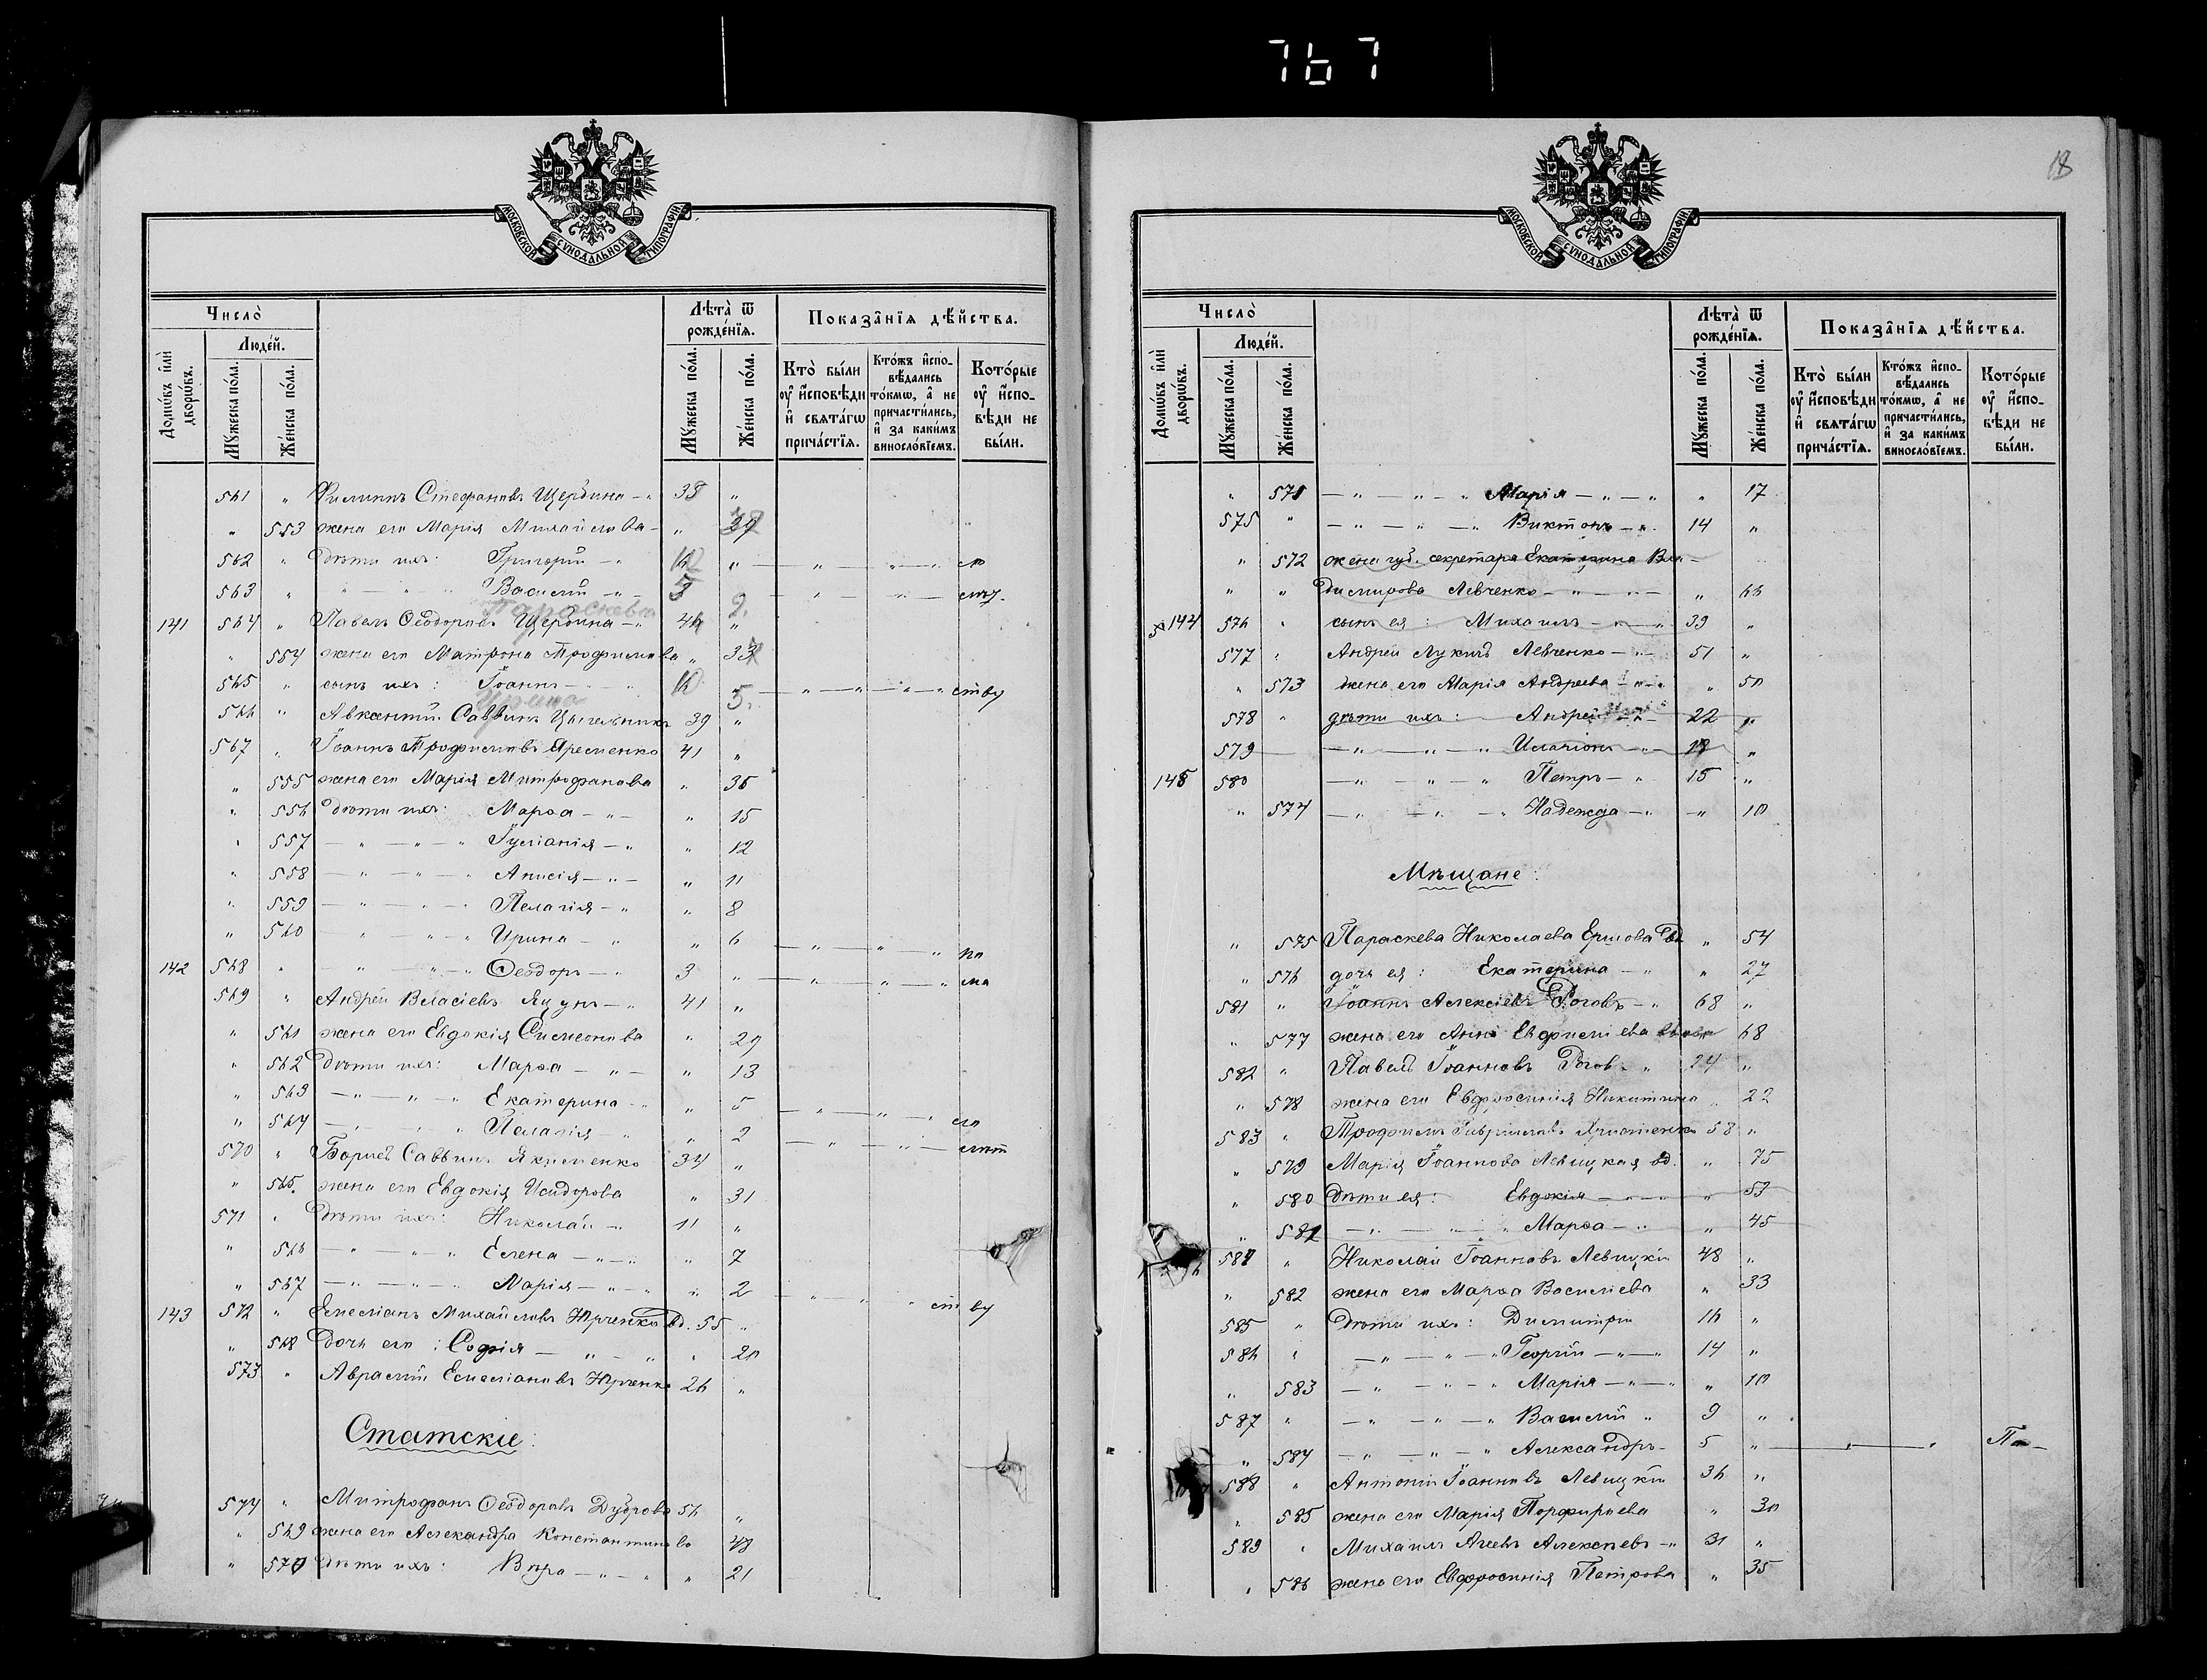 767
18
МОСКОВСКОЙ СУНОДАЛЬНОЙ ТИПОГРАФІИ
Число̀
Люде́й.
Домѡ́въ и҆лѝ дворѡ́въ.
Мꙋ́жеска по́ла.
Же́нска по́ла.
Лѣта̀ ѿ рожде́нїѧ.
Мꙋ́жеска по́ла.
Же́нска по́ла.
Показа̑нїѧ дѣ́йства.
Кто̀ бы́ли ᲂу҆ и҆́сповѣди и҆ свѧта́гѡ прича́стїѧ.
Кто́жъ и҆спо-
вѣ́дались
то́кмѡ, а҆ не
причасти́лись,
и҆ за каки́мъ
винослӧ́вїемъ.
Кото́рые
ᲂу҆ и҆спо-
вѣди не
бы́ли.
561 " Филиппъ Стефановъ Щербина — " 38 "
" 553 жена его Марія Михайлова — " 39
562 " Дѣти ихъ: Григорій — " 12 " — " — " — " по
563 " " — " Василій — " — 5
Параскева 2.
141 564 " Павелъ Ѳеодоровъ Щербина — " 46 "
" 554 жена его Матрона Трофимова " 33
565 " сынъ ихъ: Іоаннъ — " 10 — " — " — " — " ству
Ирина 5.
566 " Авксентій Саввинъ Цыгельникъ 39 "
567 " Іоаннъ Трофимовъ Яременко 41 "
" 555 жена его Марія Митрофанова " 36
" 556 Дѣти ихъ: Марѳа — " — " 15
" 557 — " — " — " Іуліанія — " " 12
" 558 — " — " — " Анисія — " — " 11
" 559 — " — " — " Пелагія — " " 8
" 560 " — " — " Ирина — " " 6 — " — " — " по
142 568 " — " — " — " Ѳеодоръ — " 3 " — " — " — " ма
569 " Андрей Власіевъ Яцунъ — " 41 "
" 561 жена его Евдокія Симеонова " 29
" 562 Дѣти ихъ: Марѳа — " — " 13
" 563 — " — " — " Екатерина — " " 5 — " — " — "
" 564 — " — " " Пелагія — " " 2 — " — " — " — лѣт
570 " Борисъ Саввинъ Якименко 34 "
" 565. жена его Евдокія Исидорова " 31
571 " Дѣти ихъ: Николай — " 11 "
" 566 — " — " — " Елена — " — " " 7
" 567 — " — " — " Марія — " — " " 2 — " — " — " ству
143 572 " Емеліанъ Михайловъ Юрченко вд. 55 "
" 568 Дочь его: Софія — " — " " 20
573 " Аврамій Емеліановъ Юрченко 26 "
Статскіе:
574 " Митрофанъ Ѳеодоровъ Дуброва 56 "
" 569 жена его Александра Константинова 48
" 570 Дѣти ихъ: Вѣра — " — " " 21
Число̀
Люде́й.
Домѡ́въ и҆лѝ дворѡ́въ.
Мꙋ́жеска по́ла.
Же́нска по́ла.
Лѣта̀ ѿ рожде́нїѧ.
Мꙋ́жеска по́ла.
Же́нска по́ла.
Показа̑нїѧ дѣ́йства.
Кто̀ бы́ли ᲂу҆ и҆́сповѣди и҆ свѧта́гѡ прича́стїѧ.
Кто́жъ и҆спо-
вѣ́дались
то́кмѡ, а҆ не
причасти́лись,
и҆ за каки́мъ
винослӧ́вїемъ.
Кото́рые
ᲂу҆ и҆спо-
вѣди не
бы́ли.
" 571 — " — " — " Марія — " — " " 17
575 " — " — " — " Викторъ — " 14 "
" 572 жена губ. секретаря Екатерина Вла-
" " димирова Левченко — " — " — " 66
144 576 " сынъ ея: Михаилъ — " — " 39 "
577 " Андрей Лукичъ Левченко — " 51 "
" 573 жена его Марія Андреева — " — " " 50
578 " дѣти ихъ: Андрей — " — 22 "
579 — " — " — " Иларіонъ — " 18 "
145 580 — " — " — " Петръ — " 15 "
" 574 — " — " — " Надежда — " — " 10
Мѣщане:
" 575 Параскева Николаева Ершова вд. " 54
" 576 дочь ея: Екатерина — " " 27
581 " Іоаннъ Алексіевъ Роговъ — " 68 "
" 577 жена его Анна Евфиміева 68
582 " Павелъ Іоанновъ Рогов " 24 "
" 578 жена его Евфросинія Никитина " 22
583 " Трофимъ Гавріиловъ 58 "
" 579 Марія Іоаннова Левицкая вд. " 75
" 580 Дѣти ея: Евдокія — " — " " 53
" 581 — " — " " Марѳа — " " 45
584 " Николай Іоанновъ Левицкій 48 "
" 582 жена его Марѳа Василіева " 33
585 " Дѣти ихъ: Димитрій 16 "
586 " — " — " — " Георгій — " — " 14 "
" 583 — " — " — " Марія — " — " " 10
587 " — " — " — " Василій " 9 "
" 584 — " — " — " Александръ — 5 " — " — " По-
588 " Антоній Іоанновъ Левицкій 36 "
" 585 жена его Марія Порфиріева " 30
589 " Михаилъ Агеевъ Алексѣевъ — " 31 "
" 586 жена его Евфросинія Петрова " 35